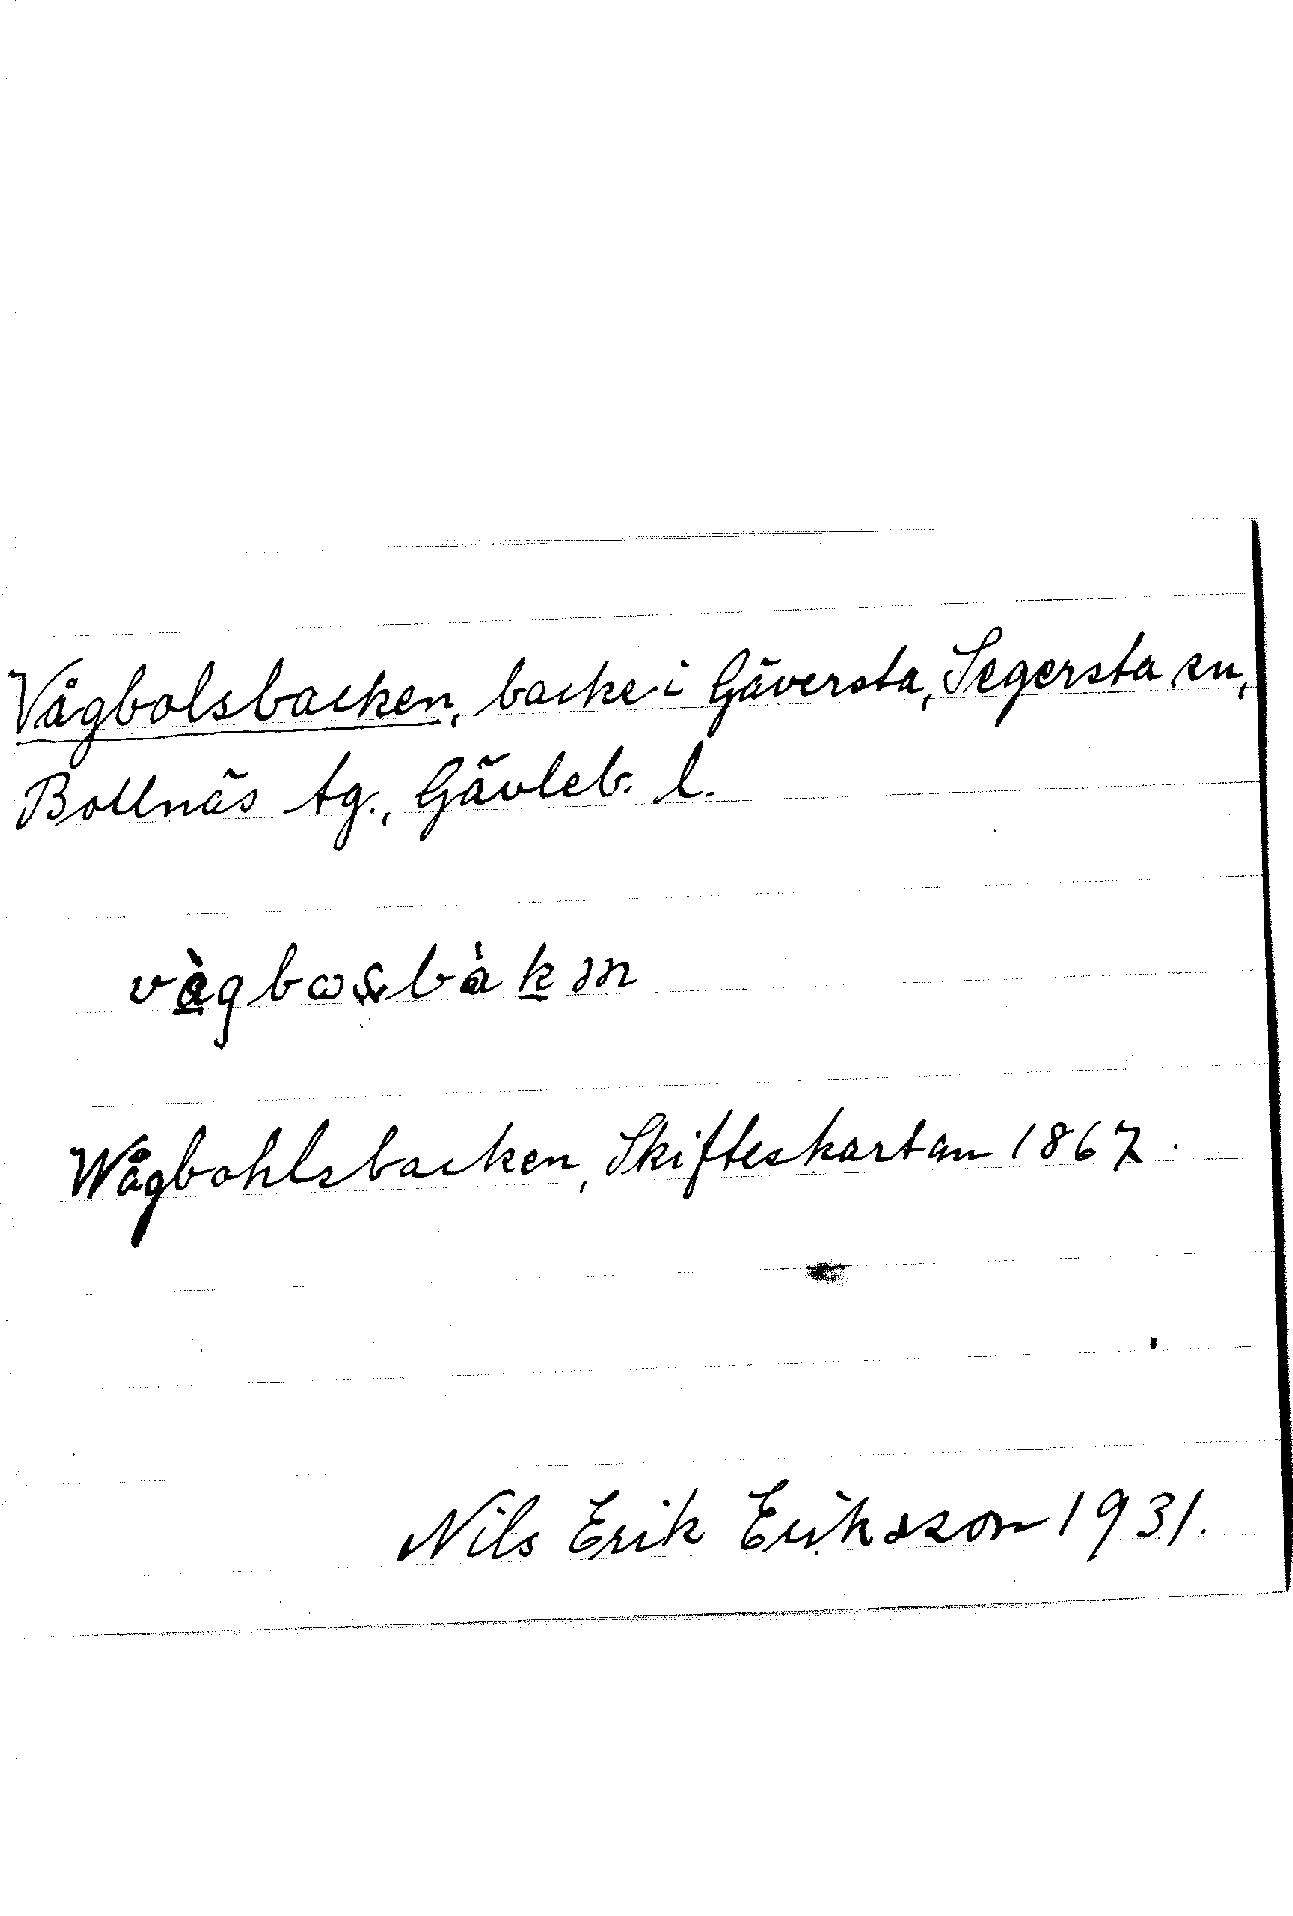 Vågbolsbacken, backe i Gäversta, Segersta sn,
Bollnäs tg., Gävleb. l.
Wågbohlsbacken, Skifteskartan 1867.
Nils Erik Eriksson 1931.